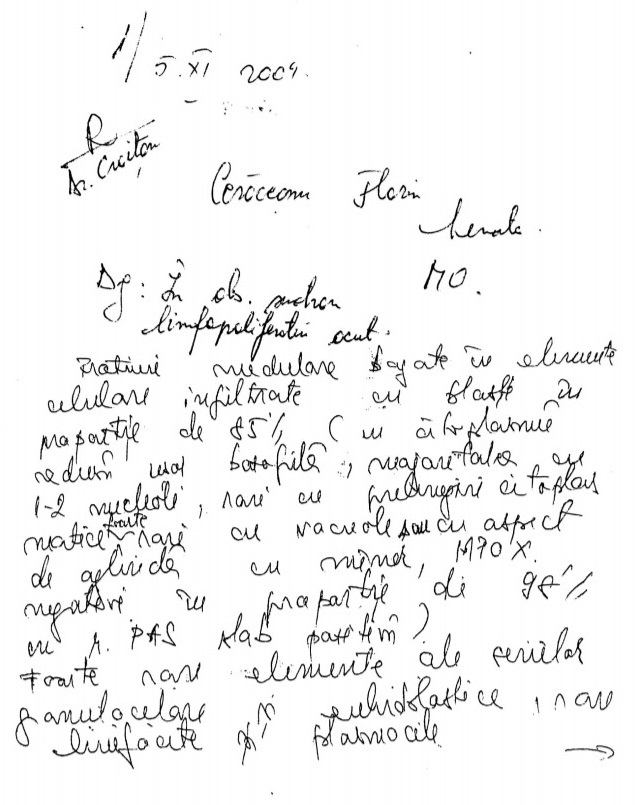 1/ 5.XI 2004.
R
Dr. Croitoru
Florin
MO.
Dg: În ob.
limfoproliferativ acut.
medulare bogate în elemente
celulare infiltrate cu blaști în
proporție de 85% (cu citoplasmă
redusă bazofilă, majoritatea cu
1-2 nucleoli, rari cu prelungiri citoplas
matice foarte rari cu vacuole sau cu aspect
de oglindă cu mâner, MPOX.
negativi în proporție de 98%
cu r. PAS slab pozitivă)
Foarte rare elemente ale seriilor
granulocitare și eritroblastice, rare
limfocite și plasmocite
→